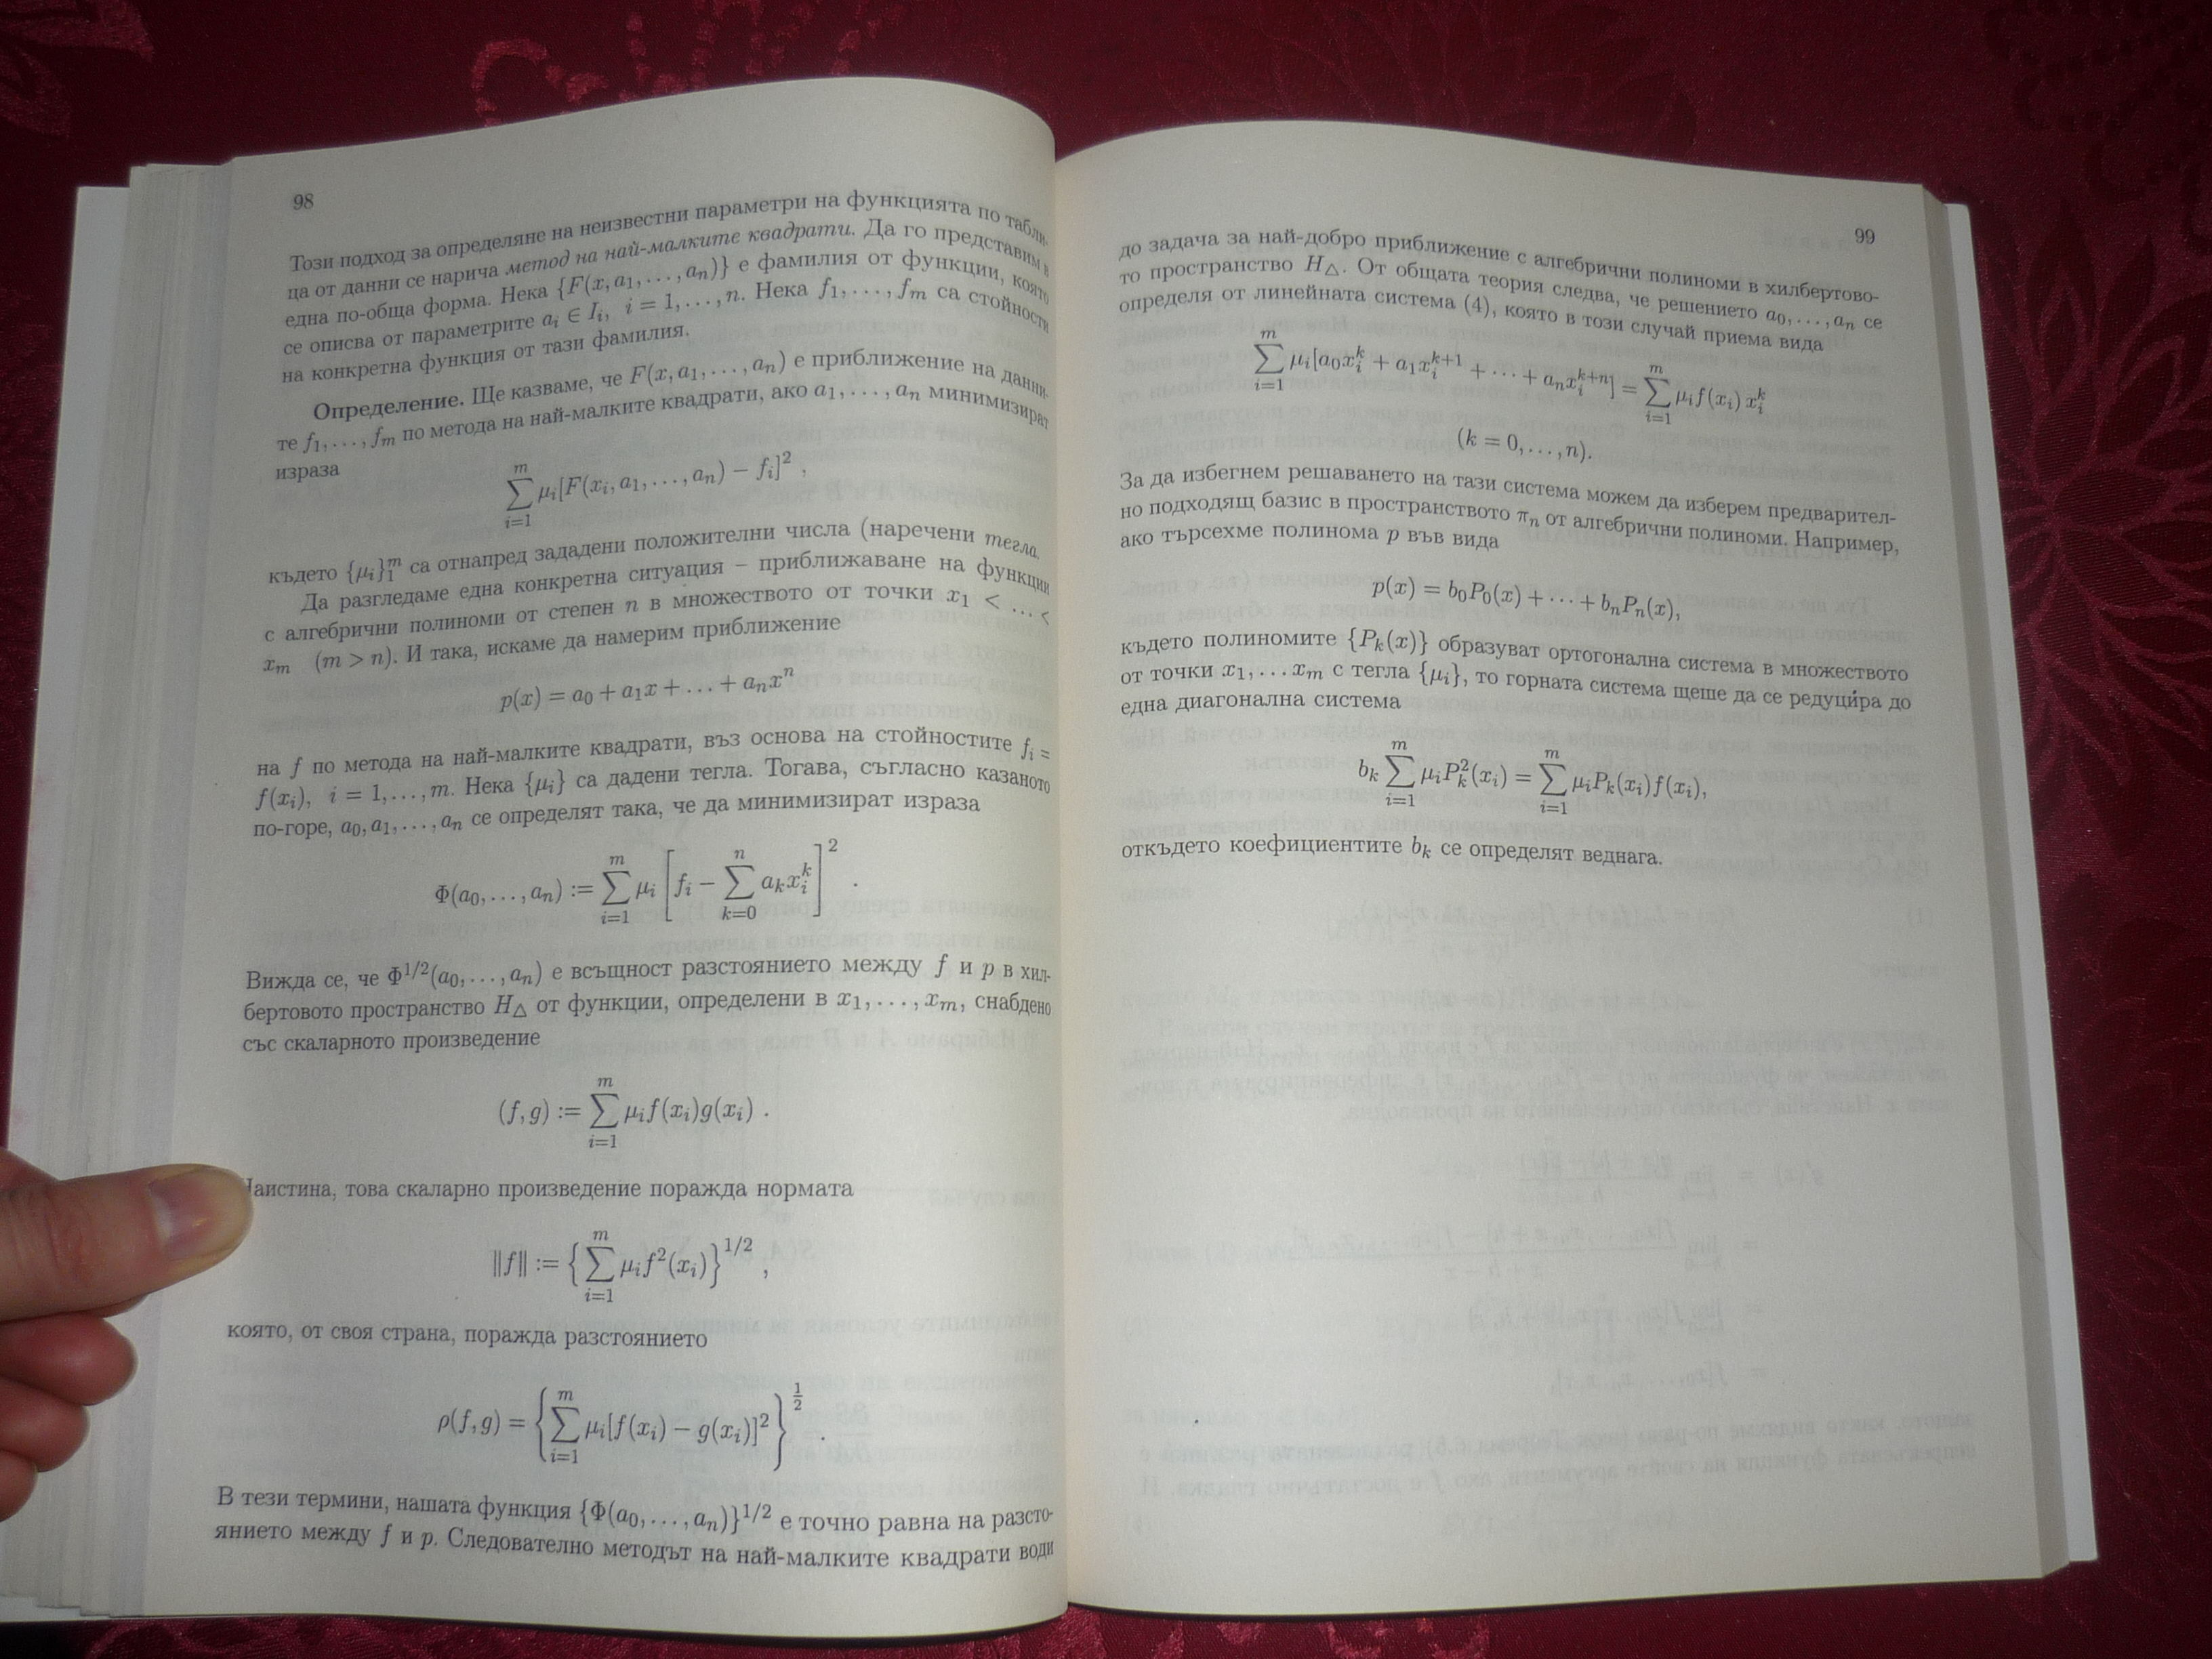 98
Този подход за определяне на неизвестни параметри на функцията по табли-
ца от данни се нарича метод на най-малките квадрати. Да го представим в
една по-обща форма. Нека {F(x, a₁, . . . , aₙ)} е фамилия от функции, която
се описва от параметрите aᵢ ∈ Iᵢ, i = 1, . . . , n. Нека f₁, . . . , fₘ са стойности
на конкретна функция от тази фамилия.
Определение. Ще казваме, че F(x, a₁, . . . , aₙ) е приближение на данни-
те f₁, . . . , fₘ по метода на най-малките квадрати, ако a₁, . . . , aₙ минимизират
израза
∑_{i=1}^{m} μᵢ[F(xᵢ, a₁, . . . , aₙ) − fᵢ]² ,
където {μᵢ}₁ᵐ са отнапред зададени положителни числа (наречени тегла
Да разгледаме една конкретна ситуация – приближаване на функции
с алгебрични полиноми от степен n в множеството от точки x₁ < . . . <
xₘ (m > n). И така, искаме да намерим приближение
p(x) = a₀ + a₁x + . . . + aₙxⁿ
на f по метода на най-малките квадрати, въз основа на стойностите fᵢ =
f(xᵢ), i = 1, . . . , m. Нека {μᵢ} са дадени тегла. Тогава, съгласно казаното
по-горе, a₀, a₁, . . . , aₙ се определят така, че да минимизират израза
Φ(a₀, . . . , aₙ) := ∑_{i=1}^{m} μᵢ [fᵢ − ∑_{k=0}^{n} aₖxᵢᵏ]² .
Вижда се, че Φ^{1/2}(a₀, . . . , aₙ) е всъщност разстоянието между f и p в хил-
бертовото пространство H_Δ от функции, определени в x₁, . . . , xₘ, снабдено
със скаларното произведение
(f, g) := ∑_{i=1}^{m} μᵢf(xᵢ)g(xᵢ) .
Наистина, това скаларно произведение поражда нормата
‖f‖ := {∑_{i=1}^{m} μᵢf²(xᵢ)}^{1/2} ,
която, от своя страна, поражда разстоянието
ρ(f, g) = {∑_{i=1}^{m} μᵢ[f(xᵢ) − g(xᵢ)]²}^{1/2} .
В тези термини, нашата функция {Φ(a₀, . . . , aₙ)}^{1/2} е точно равна на разсто-
янието между f и p. Следователно методът на най-малките квадрати води
99
до задача за най-добро приближение с алгебрични полиноми в хилбертово-
то пространство H_Δ. От общата теория следва, че решението a₀, . . . , aₙ се
определя от линейната система (4), която в този случай приема вида
∑_{i=1}^{m} μᵢ[a₀xᵢᵏ + a₁xᵢᵏ⁺¹ + · · · + aₙxᵢᵏ⁺ⁿ] = ∑_{i=1}^{m} μᵢf(xᵢ) xᵢᵏ
(k = 0, . . . , n).
За да избегнем решаването на тази система можем да изберем предварител-
но подходящ базис в пространството πₙ от алгебрични полиноми. Например,
ако търсехме полинома p във вида
p(x) = b₀P₀(x) + · · · + bₙPₙ(x),
където полиномите {Pₖ(x)} образуват ортогонална система в множеството
от точки x₁, . . . xₘ с тегла {μᵢ}, то горната система щеше да се редуцира до
една диагонална система
bₖ ∑_{i=1}^{m} μᵢPₖ²(xᵢ) = ∑_{i=1}^{m} μᵢPₖ(xᵢ)f(xᵢ),
откъдето коефициентите bₖ се определят веднага.